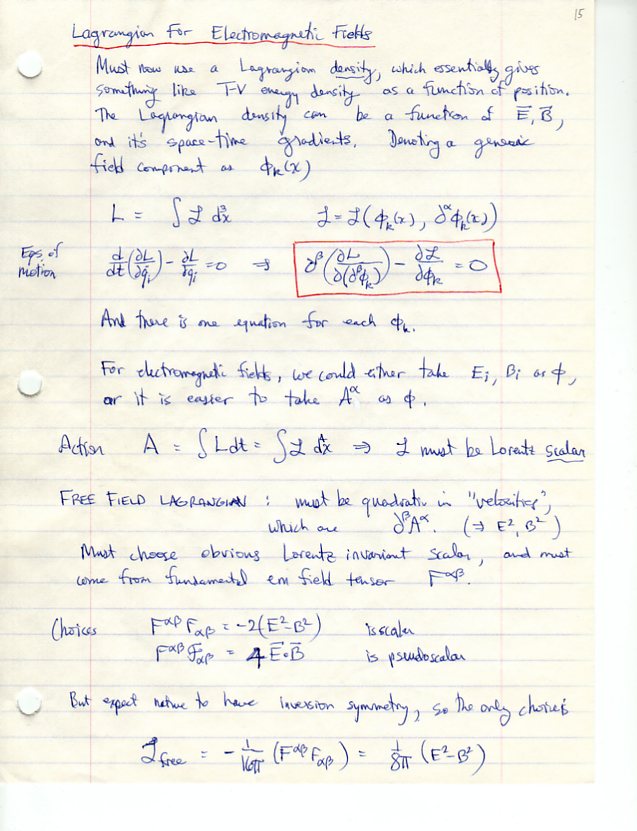 15
Lagrangian For Electromagnetic Fields
Must now use a Lagrangian density, which essentially gives
something like T-V energy density as a function of position.
The Lagrangian density can be a function of E⃗, B⃗,
and it's space-time gradients. Denoting a generic
field component as ϕₖ(x)
L = ∫ ℒ d³x ℒ = ℒ(ϕₖ(x), ∂^α ϕₖ(x))
Eqs. of motion d/dt (∂L/∂q̇ᵢ) - ∂L/∂qᵢ = 0 ⇒ ∂^β (∂L/∂(∂^β ϕₖ)) - ∂ℒ/∂ϕₖ = 0
And there is one equation for each ϕₖ.
For electromagnetic fields, we could either take Eᵢ, Bᵢ as ϕ,
or it is easier to take A^α as ϕ.
Action A = ∫ L dt = ∫ ℒ d⁴x ⇒ ℒ must be Lorentz scalar
FREE FIELD LAGRANGIAN : must be quadratic in "velocities",
which are ∂^β A^α. (⇒ E², B²)
Must choose obvious Lorentz invariant scalar, and must
come from fundamental em field tensor F^αβ.
Choices F^αβ F_αβ = -2(E²-B²) is scalar
F^αβ ℱ_αβ = 4 E⃗·B⃗ is pseudoscalar
But expect nature to have inversion symmetry, so the only choice is
ℒ free = - 1/16π (F^αβ F_αβ) = 1/8π (E²-B²)